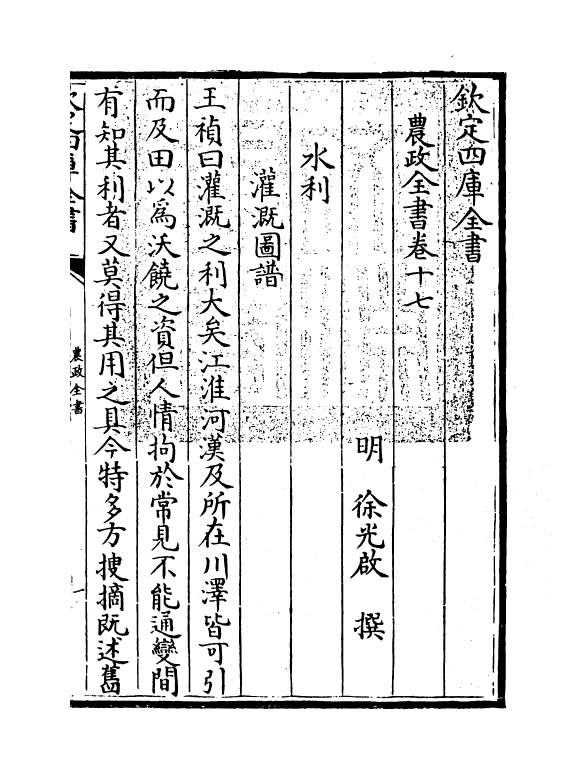 欽定四庫全書
農政全書卷十七
明　徐光啟　撰
水利
灌溉圖譜
王禎曰灌溉之利大矣江淮河漢及所在川澤皆可引
而及田以爲沃饒之資但人情拘於常見不能通變間
有知其利者又莫得其用之具今特多方搜摘既述舊
農政全書